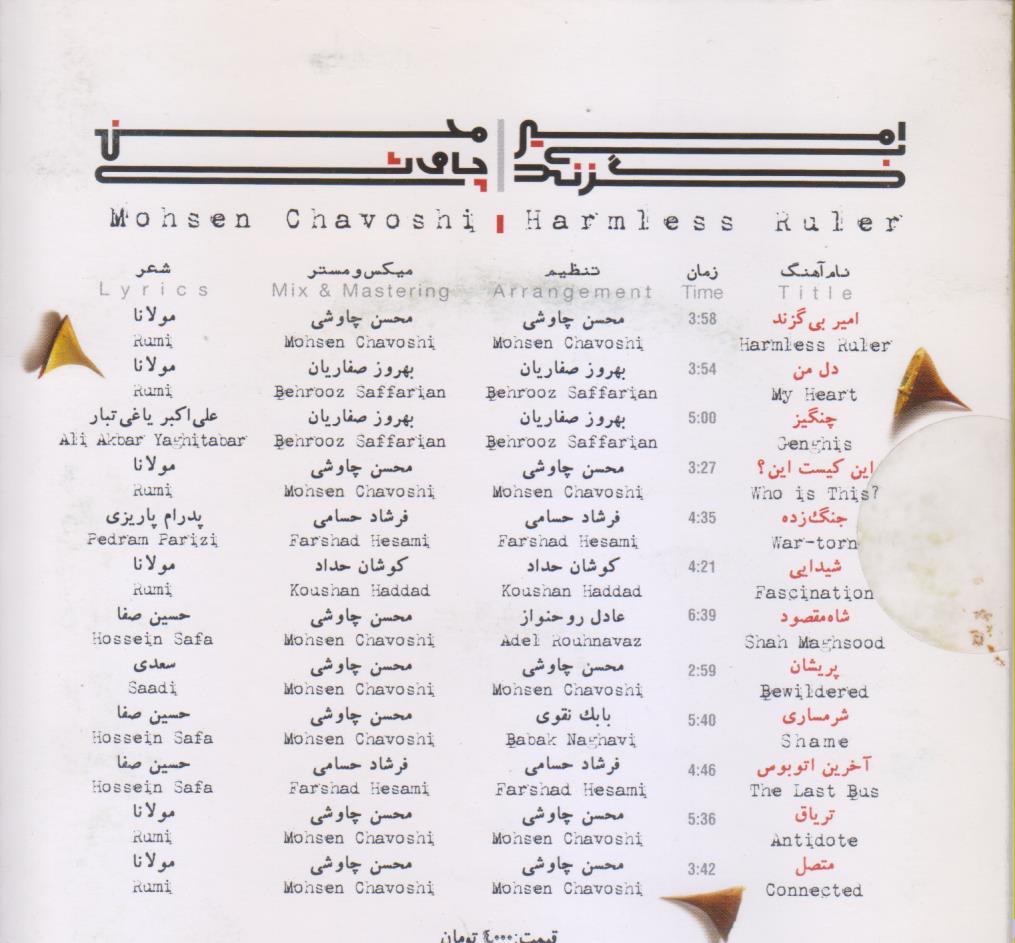 امیر بی گزند | محسن چاوشی
Mohsen Chavoshi | Harmless Ruler
نام آهنگ زمان تنظیم میکس و مستر شعر
Lyrics Mix & Mastering Arrangement Time Title
امیر بی گزند 3:58 محسن چاوشی محسن چاوشی مولانا
Rumi Mohsen Chavoshi Mohsen Chavoshi Harmless Ruler
دل من 3:54 بهروز صفاریان بهروز صفاریان مولانا
Rumi Behrooz Saffarian Behrooz Saffarian My Heart
چنگیز 5:00 بهروز صفاریان بهروز صفاریان علی اکبر یاغی تبار
Ali Akbar Yaghitabar Behrooz Saffarian Behrooz Saffarian Genghis
این کیست این؟ 3:27 محسن چاوشی محسن چاوشی مولانا
Rumi Mohsen Chavoshi Mohsen Chavoshi Who is This?
جنگ‌زده 4:35 فرشاد حسامی فرشاد حسامی پدرام پاریزی
Pedram Parizi Farshad Hesami Farshad Hesami War-torn
شیدایی 4:21 کوشان حداد کوشان حداد مولانا
Rumi Koushan Haddad Koushan Haddad Fascination
شاه‌مقصود 6:39 عادل روحنواز محسن چاوشی حسین صفا
Hossein Safa Mohsen Chavoshi Adel Rouhnavaz Shah Maghsood
پریشان 2:59 محسن چاوشی محسن چاوشی سعدی
Saadi Mohsen Chavoshi Mohsen Chavoshi Bewildered
شرمساری 5:40 بابک نقوی محسن چاوشی حسین صفا
Hossein Safa Mohsen Chavoshi Babak Naghavi Shame
آخرین اتوبوس 4:46 فرشاد حسامی فرشاد حسامی حسین صفا
Hossein Safa Farshad Hesami Farshad Hesami The Last Bus
تریاق 5:36 محسن چاوشی محسن چاوشی مولانا
Rumi Mohsen Chavoshi Mohsen Chavoshi Antidote
متصل 3:42 محسن چاوشی محسن چاوشی مولانا
Rumi Mohsen Chavoshi Mohsen Chavoshi Connected
قیمت: ۴۰۰۰ تومان